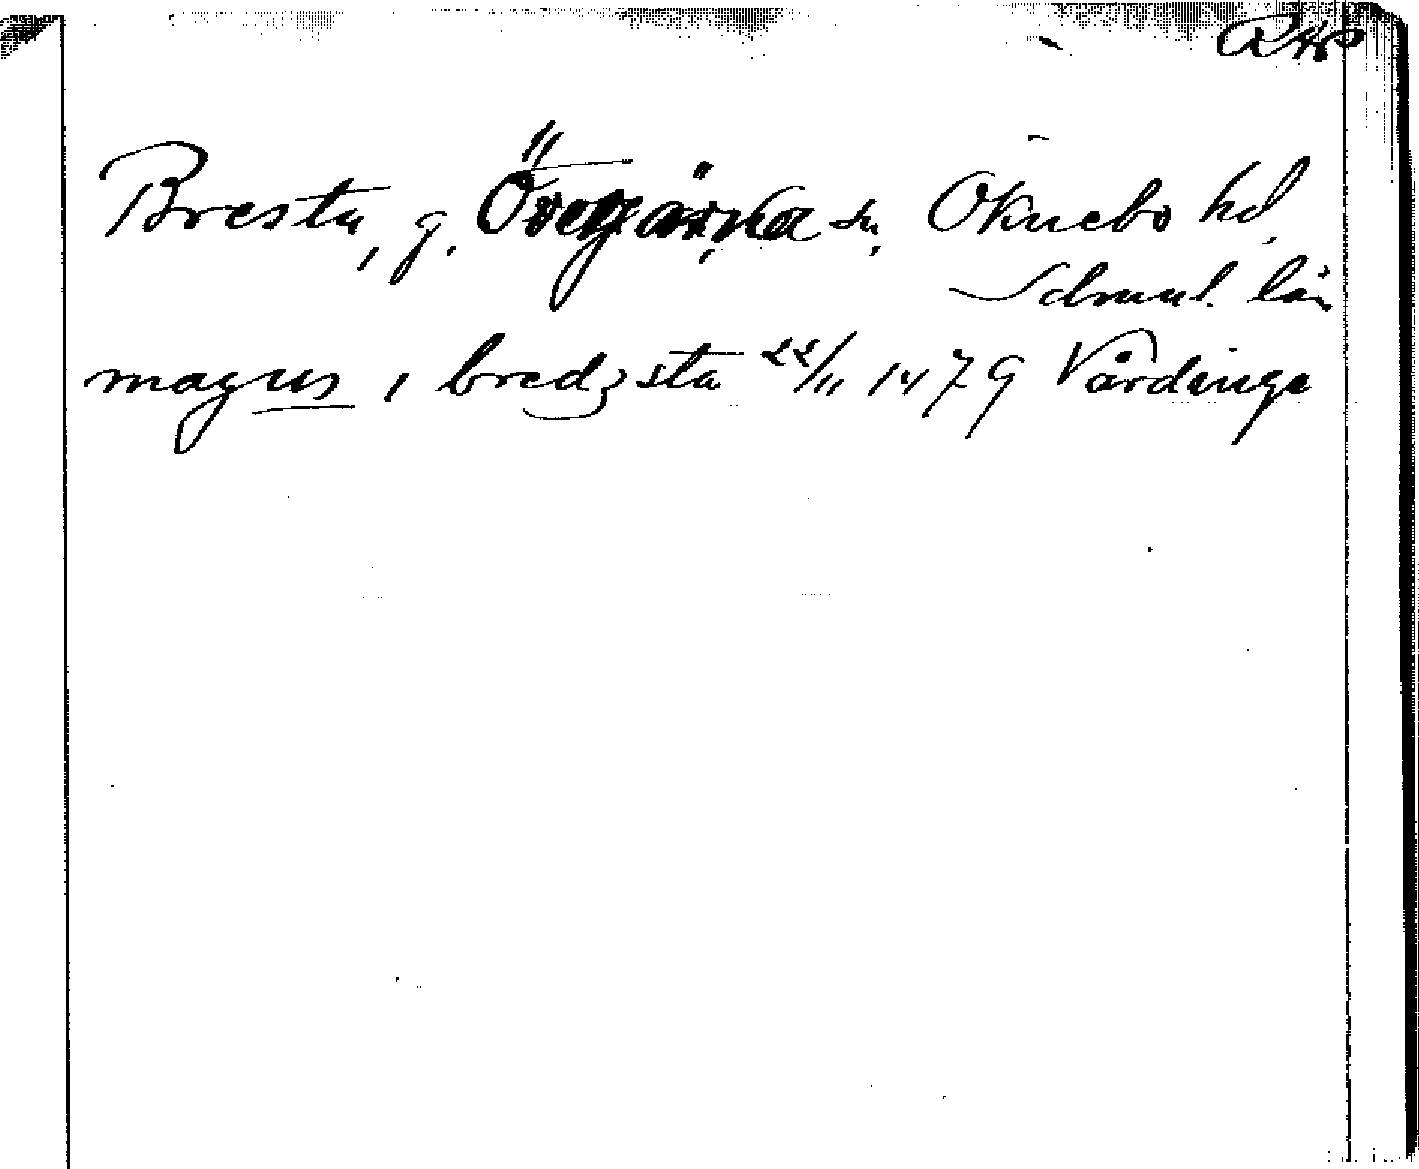 Bresta, g. Överjärna sn, Öknebo hd,
Sdmnl. län
magnus i bredzsta 22/11 1479 Vårdinge